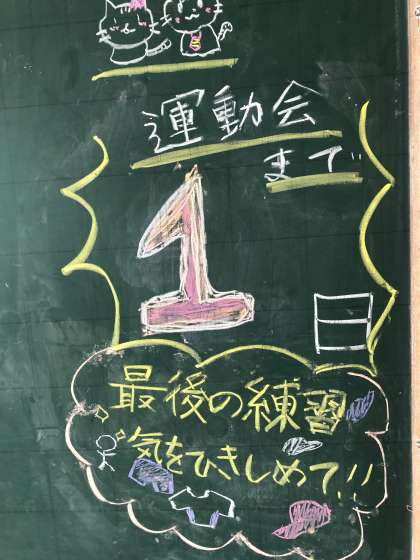 運動会
まで
1日
最後の練習
気をひきしめて!!